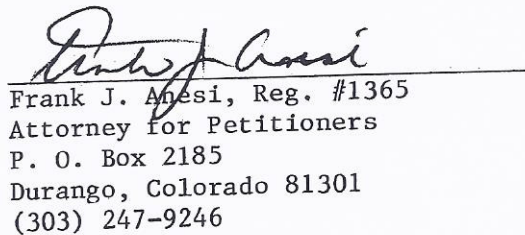 Frank J. Anesi
Frank J. Anesi, Reg. #1365
Attorney for Petitioners
P. O. Box 2185
Durango, Colorado 81301
(303) 247-9246